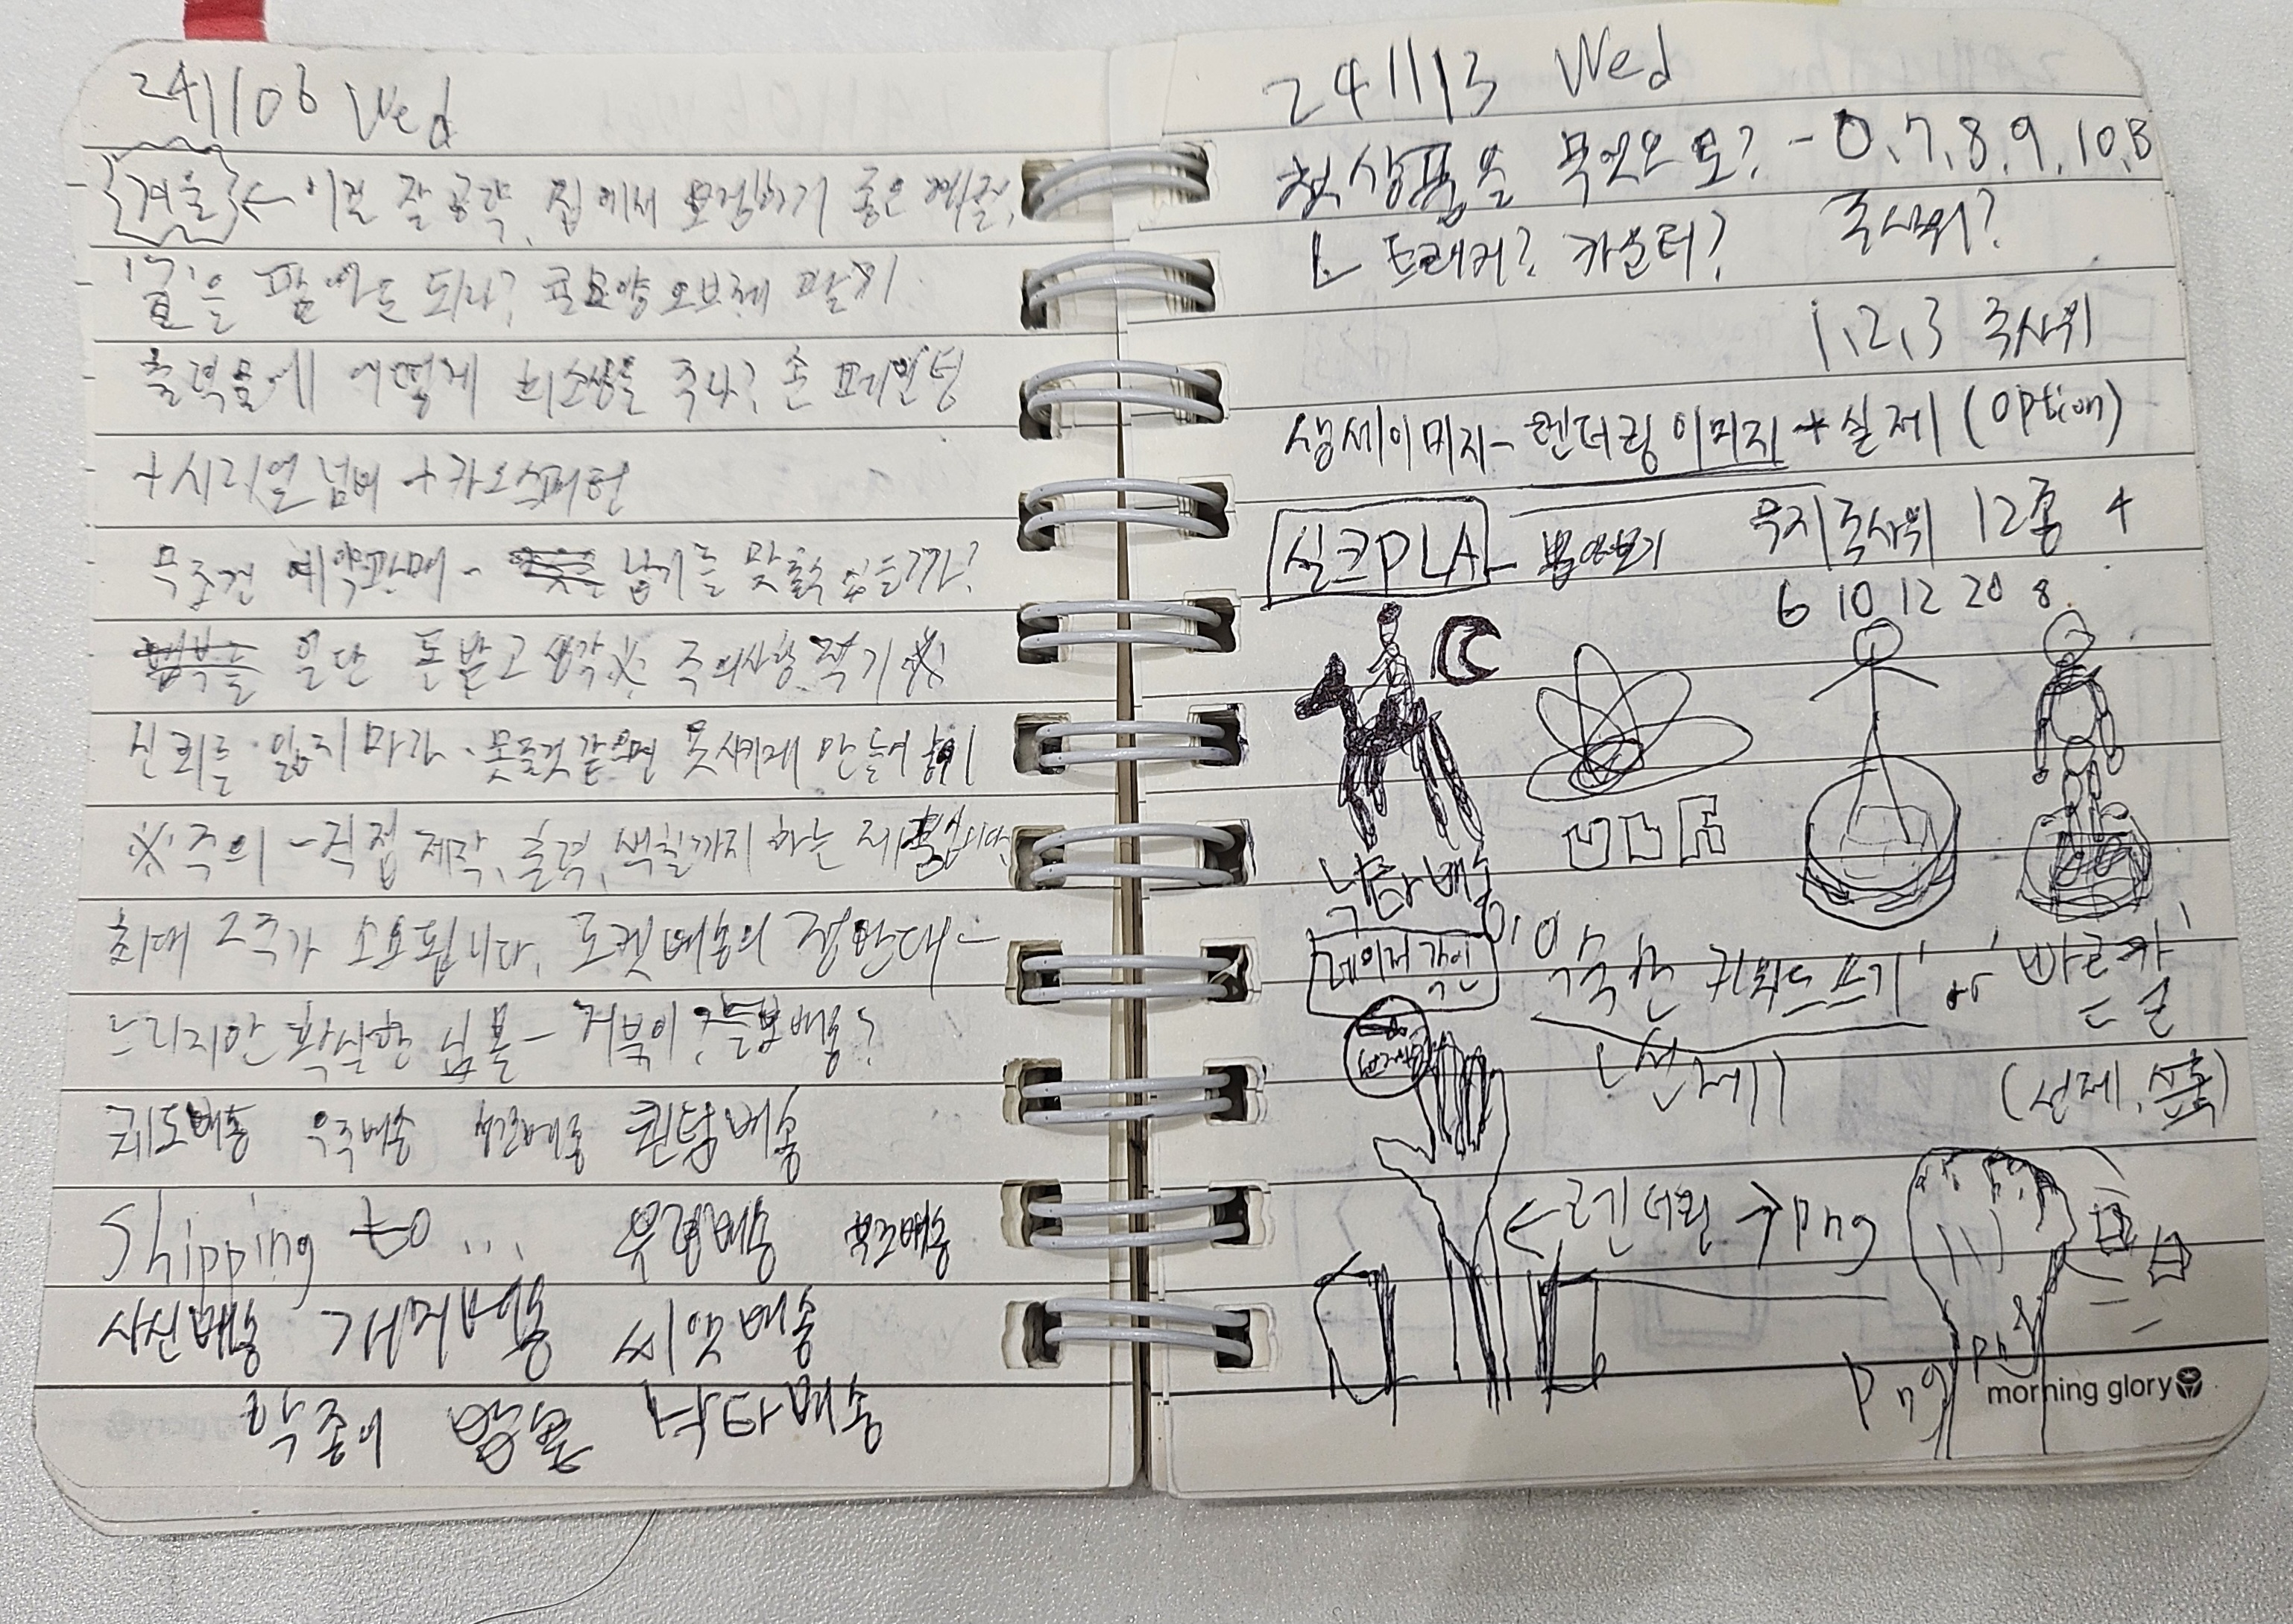 241106 Wed
겨울 ← 이걸 잘 공략, 집에서 모험하기 좋은 계절,
'검'을 팔아도 되나? 검모양 오브제 팔기
출력물에 어떻게 희소성을 주나? 손 페인팅
+ 시리얼 넘버 + 카오스패턴
무조건 예약판매 - 납기를 맞출수 있는가?
일단 돈 받고 생각 ※ 주의사항 적기 ※
신뢰를 잃지 마라. 못줄것 같으면 못시키게 만들어
※ 주의 - 직접 제작, 출력, 색칠까지 하는 제품입니다
최대 2주가 소요됩니다. 로켓배송의 정반대 -
느리지만 확실한 심볼 - 거북이? 배송?
궤도배송 우주배송 퀀텀배송
Shipping to ... 유령배송
사신배송 개미배송 씨앗배송
학종이 낙타배송
241113 Wed
첫 상품을 무엇으로? - 0, 7, 8, 9, 10, B
주사위?
ㄴ 트래커? 카운터?
1, 2, 3 주사위
상세이미지 - 렌더링 이미지 + 실제 (option)
실크PLA - 뽑아보기
무지주사위 12종 4
6 10 12 20 8
낙타배송
레이저 각인
익숙한 키워드 쓰기' or '바로가'
느낌
(선제)
(선제, 후)
← 렌더링 → png
png
png
morning glory